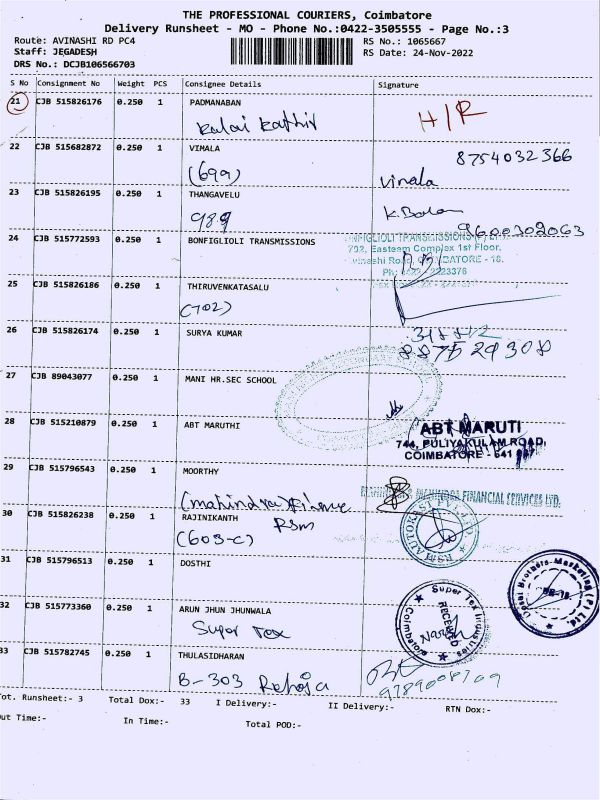 THE PROFESSIONAL COURIERS, Coimbatore
Delivery Runsheet - MO - Phone No.:0422-3505555 - Page No.:3
Route: AVINASHI RD PC4
RS No.: 1065667
Staff: JEGADESH
RS Date: 24-Nov-2022
DRS No.: DCJB106566703
S No Consignment No Weight PCS Consignee Details Signature
21 CJB 515826176 0.250 1 PADMANABAN
Kalai Kathir
H/R
22 CJB 515682872 0.250 1 VIMALA
8754032366
(699)
Vimala
23 CJB 515826195 0.250 1 THANGAVELU
989
9600302063
24 CJB 515772593 0.250 1 BONFIGLIOLI TRANSMISSIONS
702, Eastern Complex 1st Floor,
25 CJB 515826186 0.250 1 THIRUVENKATASALU
(702)
26 CJB 515826174 0.250 1 SURYA KUMAR
27 CJB 89043077 0.250 1 MANI HR.SEC SCHOOL
28 CJB 515210879 0.250 1 ABT MARUTHI
ABT MARUTI
744, PULIYAKULAM ROAD,
COIMBATORE - 641
29 CJB 515796543 0.250 1 MOORTHY
MAHINDRA FINANCIAL SERVICES LTD.
30 CJB 515826238 0.250 1 RAJINIKANTH
RSM
(603-C)
31 CJB 515796513 0.250 1 DOSTHI
32 CJB 515773360 0.250 1 ARUN JHUN JHUNWALA
Super Tex
Super Tex Industries
RECEIVED
Coimbatore
33 CJB 515782745 0.250 1 THULASIDHARAN
B-303 Raheja
9789008709
Tot. Runsheet:- 3 Total Dox:- 33 I Delivery:- II Delivery:- RTN Dox:-
Out Time:- In Time:- Total POD:-